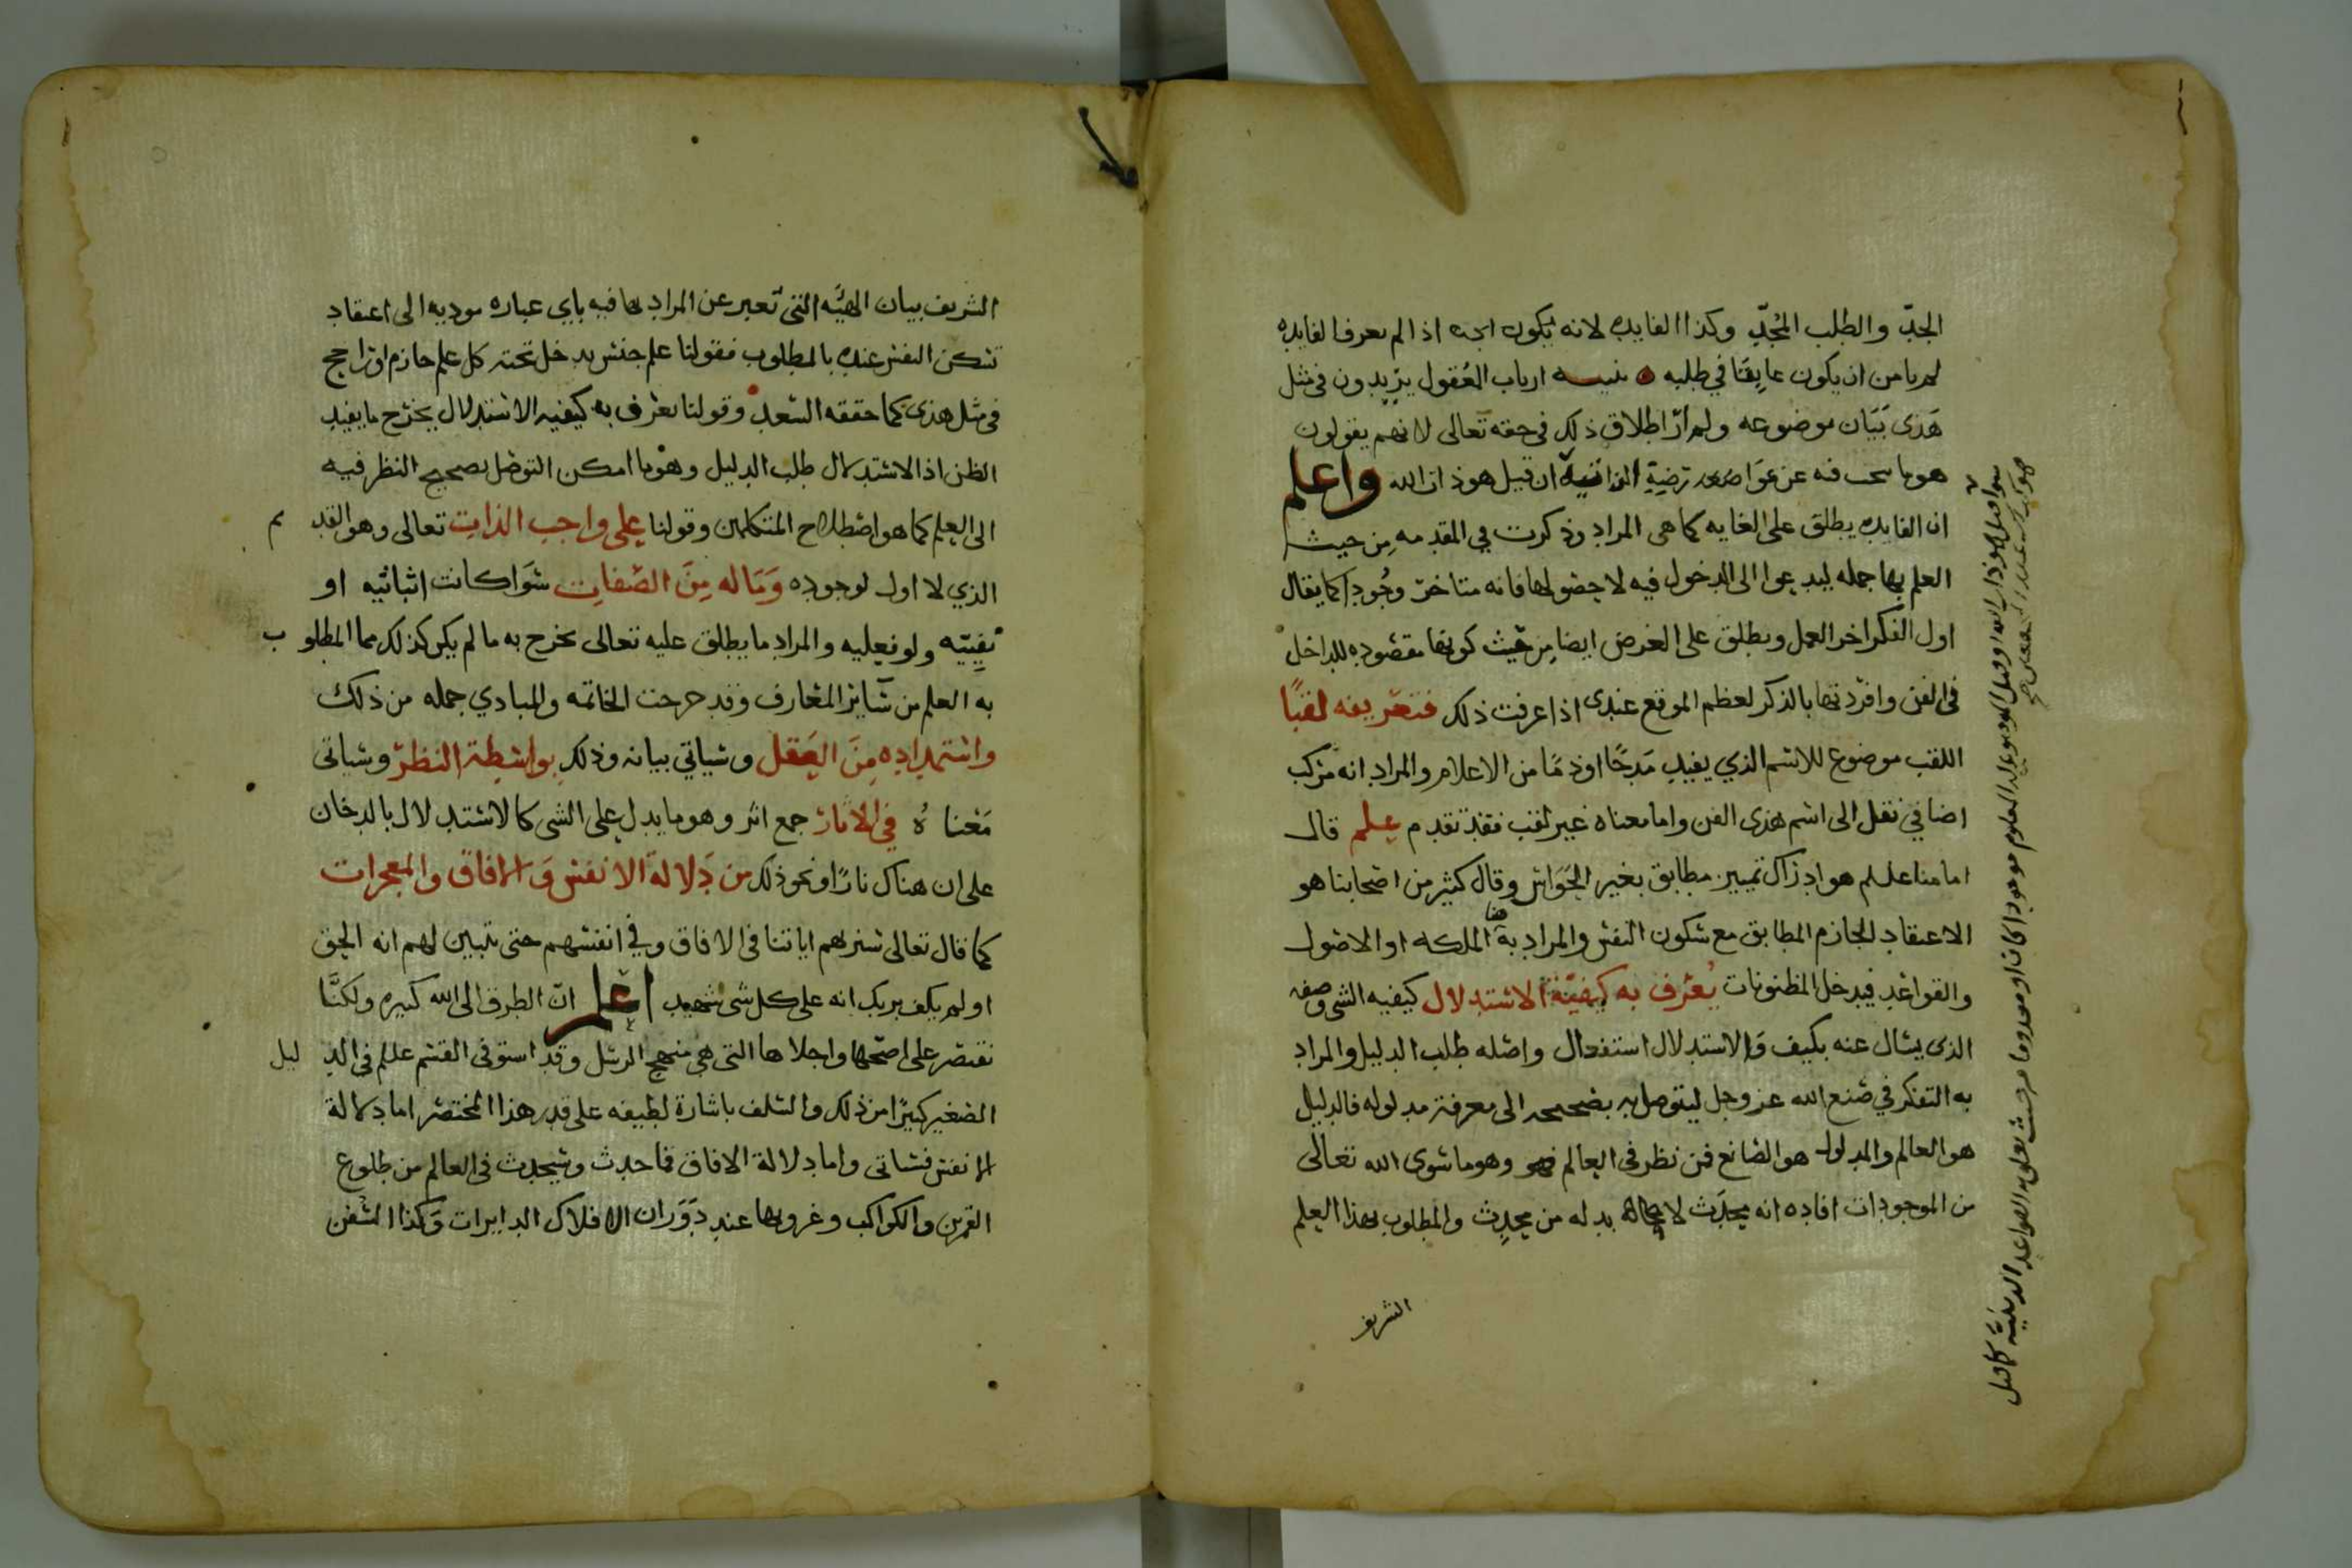 الجدّ والطلب المُجدّ وكذا الفايده لانه يكون اذا لم يعرف الفايده
لم يامن ان يكون عايقا في طلبه تنبيه ارباب العقول يزيدون في مثل
هذى بيان موضوعه ولم ار اطلاق ذلك في حقه تعالى لانهم يقولون
هو ما يبحث فيه عن عوارضه الذاتية ان قيل هو ذات الله واعلم
ان الفايده يطلق على الغايه كما هي المراد وذكرت في المقدمه من حيث
العلم بها جمله ليدعوا الى الدخول فيه لا حصولها فانه متاخر وجودا كما يقال
اول الفكر اخر العمل ويطلق على الغرض ايضا من حيث كونها مقصوده للداخل
في الفن وافردتها بالذكر لعظم الموقع عندى اذا عرفت ذلك فتعريفه لقبًا
اللقب موضوع للاسم الذي يفيد مدحًا او ذمًا من الاعلام والمراد انه مركب
اضافي نقل الى اسم هذى الفن واما معناه غير لقب فقد تقدم علم قال
امامنا علم هو ادراك تمييز مطابق بغير الحواس وقال كثير من اصحابنا هو
الاعتقاد الجازم المطابق مع سكون النفس والمراد به هنا الملكه او الاصول
والقواعد فيدخل المظنونات يُعرف به كيفيّة الاستدلال كيفيه الشي وصفه
الذى يسال عنه بكيف والاستدلال استفعال واصله طلب الدليل والمراد
به التفكر في صنع الله عز وجل ليتوصل به بصحيحه الى معرفة مدلوله فالدليل
هو العالم والمدلول هو الصانع فمن نظر في العالم وهو ما سوى الله تعالى
من الموجودات افاده انه محدَث لا محالة بد له من محدِث والمطلوب بهذا العلم
الشريف
الشريف بيان الهيّه التي تعبر عن المراد بها فيه باي عباره موديه الى اعتقاد
تسكن النفس عنده بالمطلوب فقولنا علم جنس يدخل تحته كل علم جازم او راجح
في مثل هذى كما حققه السعد وقولنا يعرف به كيفيه الاستدلال يخرج ما يفيد
الظن اذ الاستدلال طلب الدليل وهو ما امكن التوصل بصحيح النظر فيه
الى العلم كما هو اصطلاح المتكلمين وقولنا على واجب الذات تعالى وهو القديم
الذي لا اول لوجوده وَمَا له مِنَ الصفات سوا كانت اثباتيه او
نفييّه ولو فعليه والمراد ما يطلق عليه تعالى يخرج به ما لم يكن كذلك مما المطلوب
به العلم من سائر المعارف وقد خرجت الخاتمه والمبادي جمله من ذلك
واستمداده مِنَ العَقل وسياتي بيانه وذلك بواسطة النظر وسياتى
مَعناهُ في الآثار جمع اثر وهو ما يدل على الشى كالاستدلال بالدخان
على ان هناك نارًا ونحو ذلك من دَلالة الانفس وَالافاق والمعجزات
كما قال تعالى سنريهم اياتنا في الافاق وفي انفسهم حتى تتبين لهم انه الحق
اولم يكف بربك انه على كل شى شهيد اعلم انّ الطرق الى الله كثيره ولكنَّا
نقتصر على اصحها واجلاها التى هي منهج الرسل وقد استوفى القسم علم في الدليل
الصغير كثيرًا من ذلك والسلف باشارة لطيفه على قدر هذا المختصر اما دلالة
الانفس فستاتى واما دلالة الافاق فما حدث وسيحدث في العالم من طلوع
القمرين والكواكب وغروبها عند دَوَران الافلاك الدايرات وَكذا السُفن